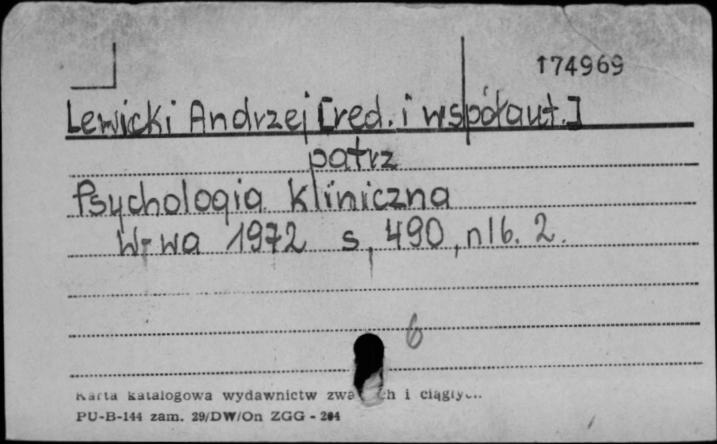 174969
Lewicki Andrzej [red. i współaut.]
patrz
Psychologia kliniczna
W-wa 1972 s, 490, nlb. 2.
6
Karta katalogowa wydawnictw i
PU-B-144 zam. 29/DW/On ZGG - 204